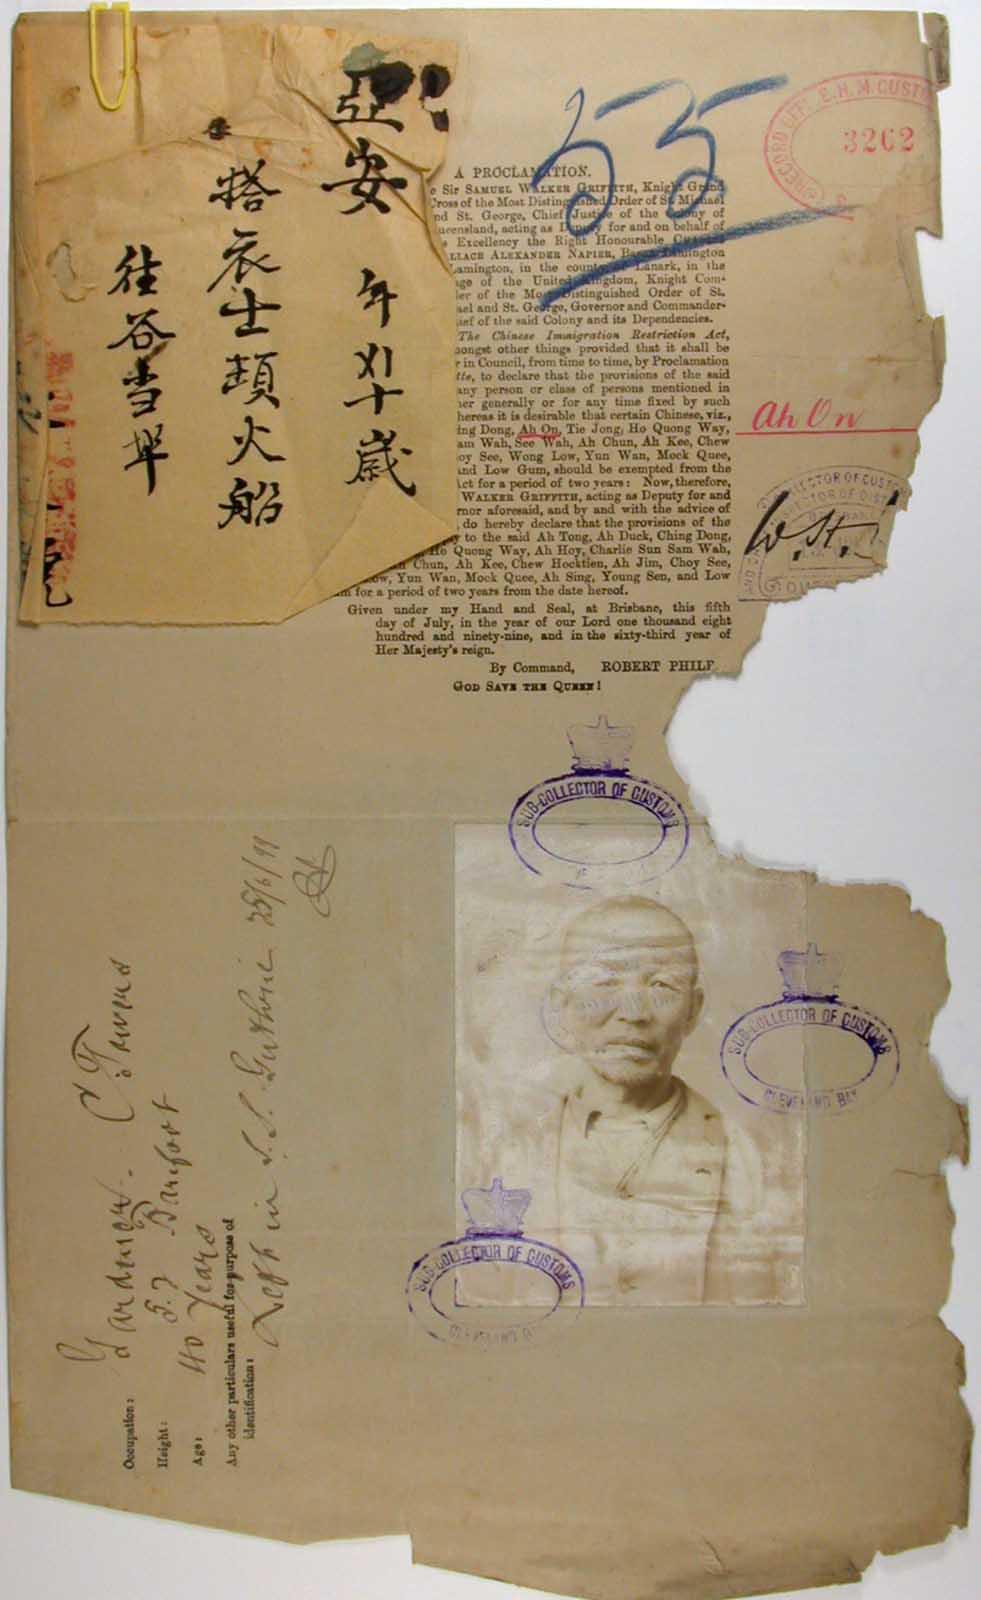 亞安 年㐅十歲
搭衣士頓火船
往谷当埠
55
RECORD OFF. E.H.M. CUST
3262
A PROCLAMATION.
e Sir SAMUEL WALKER GRIFFITH, Knight Grand
Cross of the Most Distinguished Order of St. Michael
nd St. George, Chief Justice of the Colony of
ueensland, acting as Deputy for and on behalf of
s Excellency the Right Honourable CHARLES
LLACE ALEXANDER NAPIER, Baron Lamington
Lamington, in the county of Lanark, in the
age of the United Kingdom, Knight Com-
der of the Most Distinguished Order of St.
ael and St. George, Governor and Commander-
ief of the said Colony and its Dependencies.
The Chinese Immigration Restriction Act,
mongst other things provided that it shall be
r in Council, from time to time, by Proclamation
tte, to declare that the provisions of the said
any person or class of persons mentioned in
her generally or for any time fixed by such
hereas it is desirable that certain Chinese, viz.,
ing Dong, Ah On, Tie Jong, Ho Quong Way,
am Wah, See Wah, Ah Chun, Ah Kee, Chew
oy See, Wong Low, Yun Wan, Mock Quee,
and Low Gum, should be exempted from the
Act for a period of two years: Now, therefore,
WALKER GRIFFITH, acting as Deputy for and
rnor aforesaid, and by and with the advice of
, do hereby declare that the provisions of the
y to the said Ah Tong, Ah Duck, Ching Dong,
, Ho Quong Way, Ah Hoy, Charlie Sun Sam Wah,
h Chun, Ah Kee, Chew Hocktien, Ah Jim, Choy See,
ow, Yun Wan, Mock Quee, Ah Sing, Young Sen, and Low
m for a period of two years from the date hereof.
Given under my Hand and Seal, at Brisbane, this fifth
day of July, in the year of our Lord one thousand eight
hundred and ninety-nine, and in the sixty-third year of
Her Majesty's reign.
By Command, ROBERT PHILP
GOD SAVE THE QUEEN!
Ah On
LECTOR OF CUSTOM
W.H.
SUB-COLLECTOR OF CUSTOMS
SUB-COLLECTOR OF CUSTOMS
CLEVELAND BAY
SUB-COLLECTOR OF CUSTOMS
CLEVELAND BAY
Occupation: Gardener.
Height: 5.7 Barefoot
Age: 40 Years
Any other particulars useful for purpose of
identification:
Left in S.S. Guthrie 25/6/99